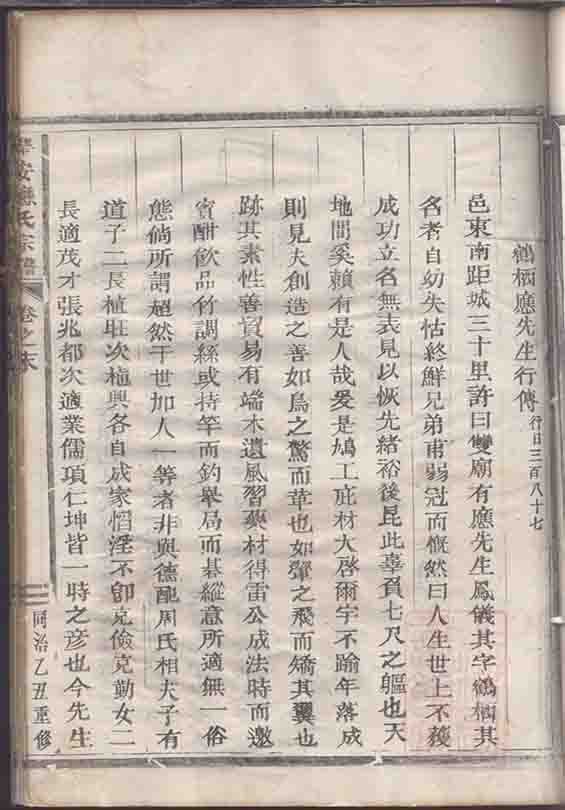 鶴栖應先生行傳 行日三百八十七
邑東南距城三十里許曰雙廟有應先生鳳儀其字鶴栖其
名者自幼失怙終鮮兄弟甫弱冠而慨然曰人生世上不獲
成功立名無表見以恢先緒裕後昆此辜負七尺之軀也天
地間奚賴有是人哉爰是鳩工庀材大啓爾宇不踰年落成
則見夫創造之善如鳥之驚而革也如翬之飛而矯其翼也
跡其素性善貿易有端木遺風習藥材得雷公成法時而邀
賓酣飲品竹調絲或持竿而釣舉局而碁縱意所適無一俗
態倘所謂超然于世加人一等者非與德配周氏相夫子有
道子二長植旺次植興各自成家慆淫不卽克儉克勤女二
長適茂才張兆都次適業儒項仁坤皆一時之彦也今先生
安應氏宗譜 卷之末
同治乙丑重修